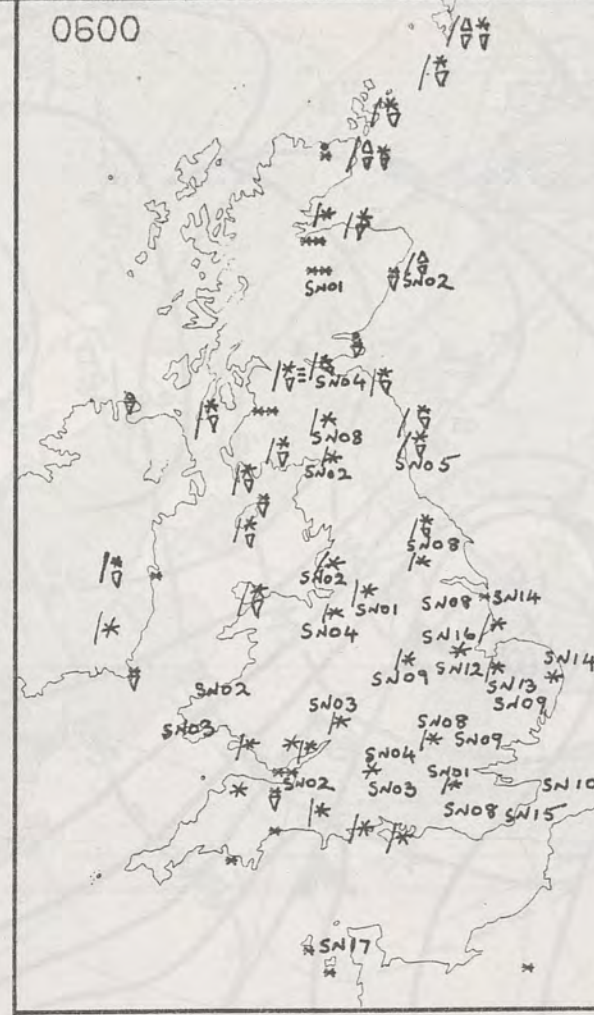 0600
SN02
SN01
SN04
SN08
SN02
SN05
SN08
SN02
SN01
SN08
SN14
SN04
SN16
SN09
SN12
SN14
SN13
SN02
SN09
SN03
SN03
SN08
SN09
SN04
SN02
SN03
SN01
SN10
SN08
SN15
SN17